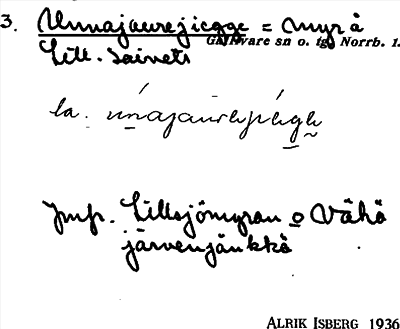 3. Unnajaurejiegge = Myr å
Gällivare sn o. tg. Norrb. l.
Lill. Saivets
la. unajaurejiegge
Jmfr. Lillsjömyran o Vähä
järvenjänkkä
ALRIK ISBERG 1936